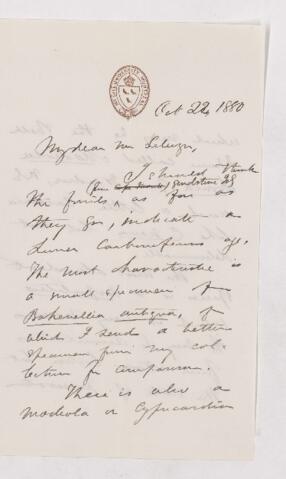 Oct 22, 1880
My dear Mr
I should think
the fossils, as far as
they go, indicate a
Lower Carboniferous age.
The most characteristic is
a small specimen of
Bakevellia antiqua, of
which I send a better
specimen from my col-
lection for comparison.
There is also a
Modiola or Cypricardia